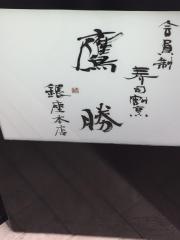 会員制
寿司割烹
鷹勝
銀座本店